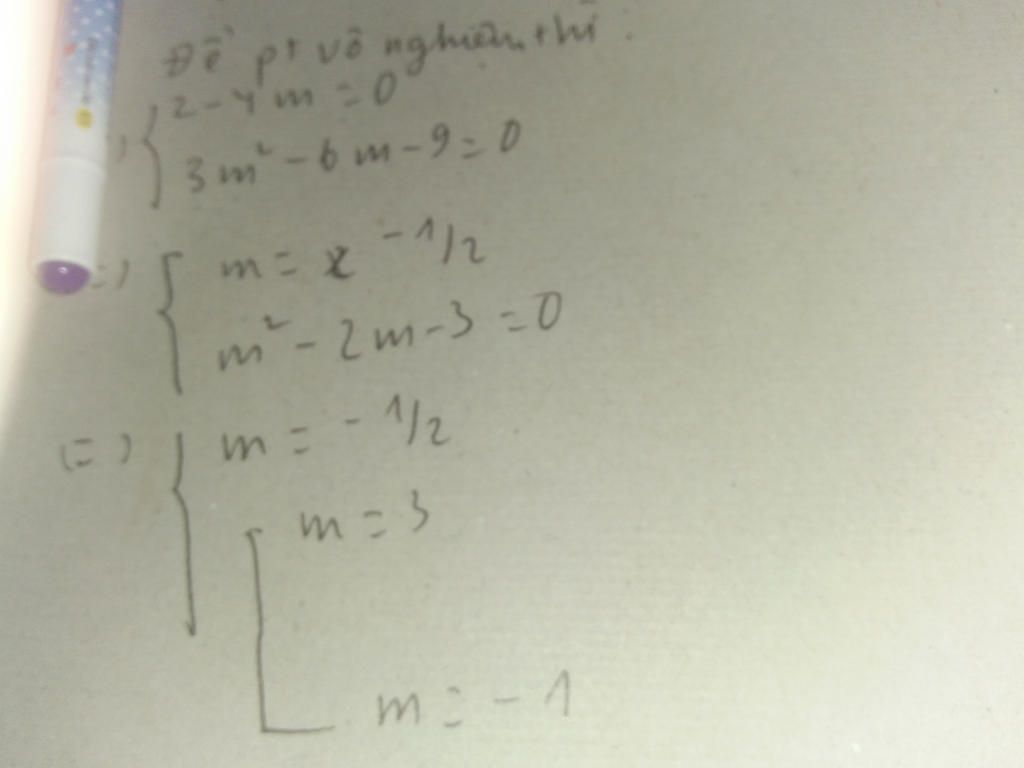 Để pt vô nghiệm thì :
2 - 4m = 0
3m² - 6m - 9 = 0
=) m = -1/2
m² - 2m - 3 = 0
(=) m = -1/2
m = 3
m = -1